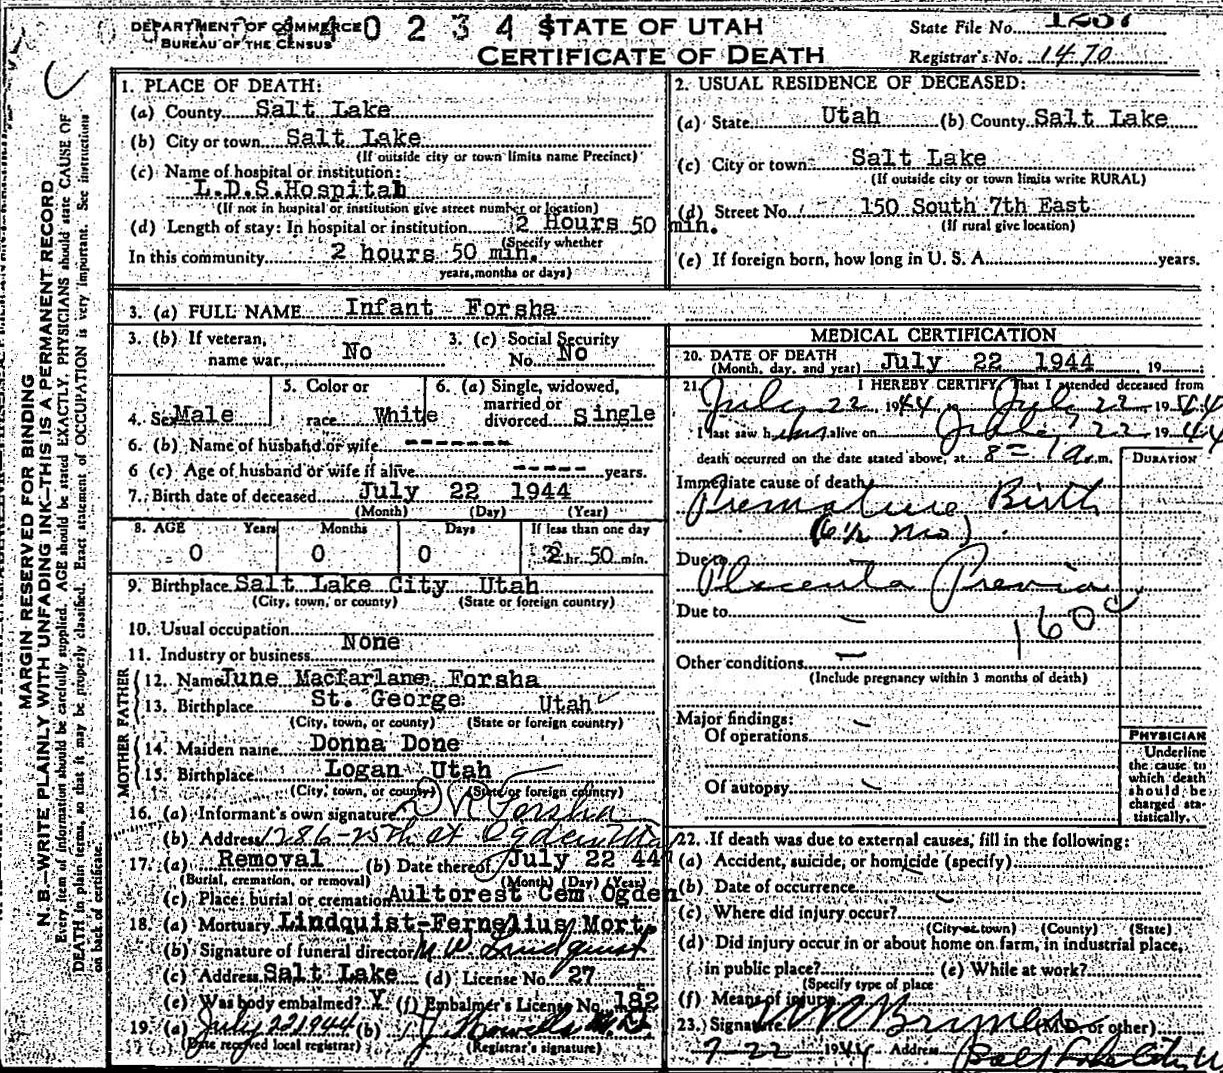 DEPARTMENT OF COMMERCE 0 2 3 4 STATE OF UTAH State File No. 1257
BUREAU OF THE CENSUS CERTIFICATE OF DEATH Registrar's No. 1470
1. PLACE OF DEATH:
(a) County Salt Lake
(b) City or town Salt Lake
(If outside city or town limits name Precinct)
(c) Name of hospital or institution:
L.D.S.Hospital
(If not in hospital or institution give street number or location)
(d) Length of stay: In hospital or institution 2 Hours 50 min.
(Specify whether
In this community 2 hours 50 min.
years, months or days)
2. USUAL RESIDENCE OF DECEASED:
(a) State Utah (b) County Salt Lake
(c) City or town Salt Lake
(If outside city or town limits write RURAL)
(d) Street No. 150 South 7th East
(If rural give location)
(e) If foreign born, how long in U. S. A. years.
3. (a) FULL NAME Infant Forsha
3. (b) If veteran, 3. (c) Social Security
name war No No. No
5. Color or 6. (a) Single, widowed,
married or
4. Sex Male race White divorced Single
6. (b) Name of husband or wife -------
6 (c) Age of husband or wife if alive ----- years.
7. Birth date of deceased July 22 1944
(Month) (Day) (Year)
8. AGE Years Months Days If less than one day
0 0 0 2 hr. 50 min.
9. Birthplace Salt Lake City Utah
(City, town, or county) (State or foreign country)
10. Usual occupation
None
11. Industry or business
FATHER
12. Name June Macfarlane Forsha
13. Birthplace St. George Utah
(City, town, or county) (State or foreign country)
MOTHER
14. Maiden name Donna Done
15. Birthplace Logan Utah
(City, town, or county) (State or foreign country)
16. (a) Informant's own signature Forsha
(b) Address 1286-25th st Ogden Utah
17. (a) Removal (b) Date thereof July 22 44
(Burial, cremation, or removal) (Month) (Day) (Year)
(c) Place: burial or cremation Aultorest Cem Ogden
18. (a) Mortuary Lindquist-Fernelius Mort.
(b) Signature of funeral director Lindquist
(c) Address Salt Lake (d) License No. 27
(e) Was body embalmed? Y (f) Embalmer's License No. 182
19. (a) July 22 1944 (b)
(Date received local registrar) (Registrar's signature)
MEDICAL CERTIFICATION
20. DATE OF DEATH
(Month, day, and year) July 22 1944 19
21. I HEREBY CERTIFY, That I attended deceased from
July 22 1944 July 22 1944
I last saw him alive on July 22 1944
death occurred on the date stated above, at m. DURATION
Immediate cause of death
Premature Birth
(6½ mo)
Due to
Placenta Previa
Due to 160c
Other conditions
(Include pregnancy within 3 months of death)
Major findings:
Of operations
Of autopsy
PHYSICIAN
Underline
the cause to
which death
should be
charged sta-
tistically.
22. If death was due to external causes, fill in the following:
(a) Accident, suicide, or homicide (specify)
(b) Date of occurrence
(c) Where did injury occur?
(City or town) (County) (State)
(d) Did injury occur in or about home on farm, in industrial place,
in public place? (e) While at work?
(Specify type of place
(f) Means of injury
23. Signature (M.D. or other)
7-22 1944 Address Salt Lake City U
MARGIN RESERVED FOR BINDING
N. B.—WRITE PLAINLY WITH UNFADING INK—THIS IS A PERMANENT RECORD
Every item of information should be carefully supplied. AGE should be stated EXACTLY. PHYSICIANS should state CAUSE OF
DEATH in plain terms, so that it may be properly classified. Exact statement of OCCUPATION is very important. See instructions
on back of certificate.